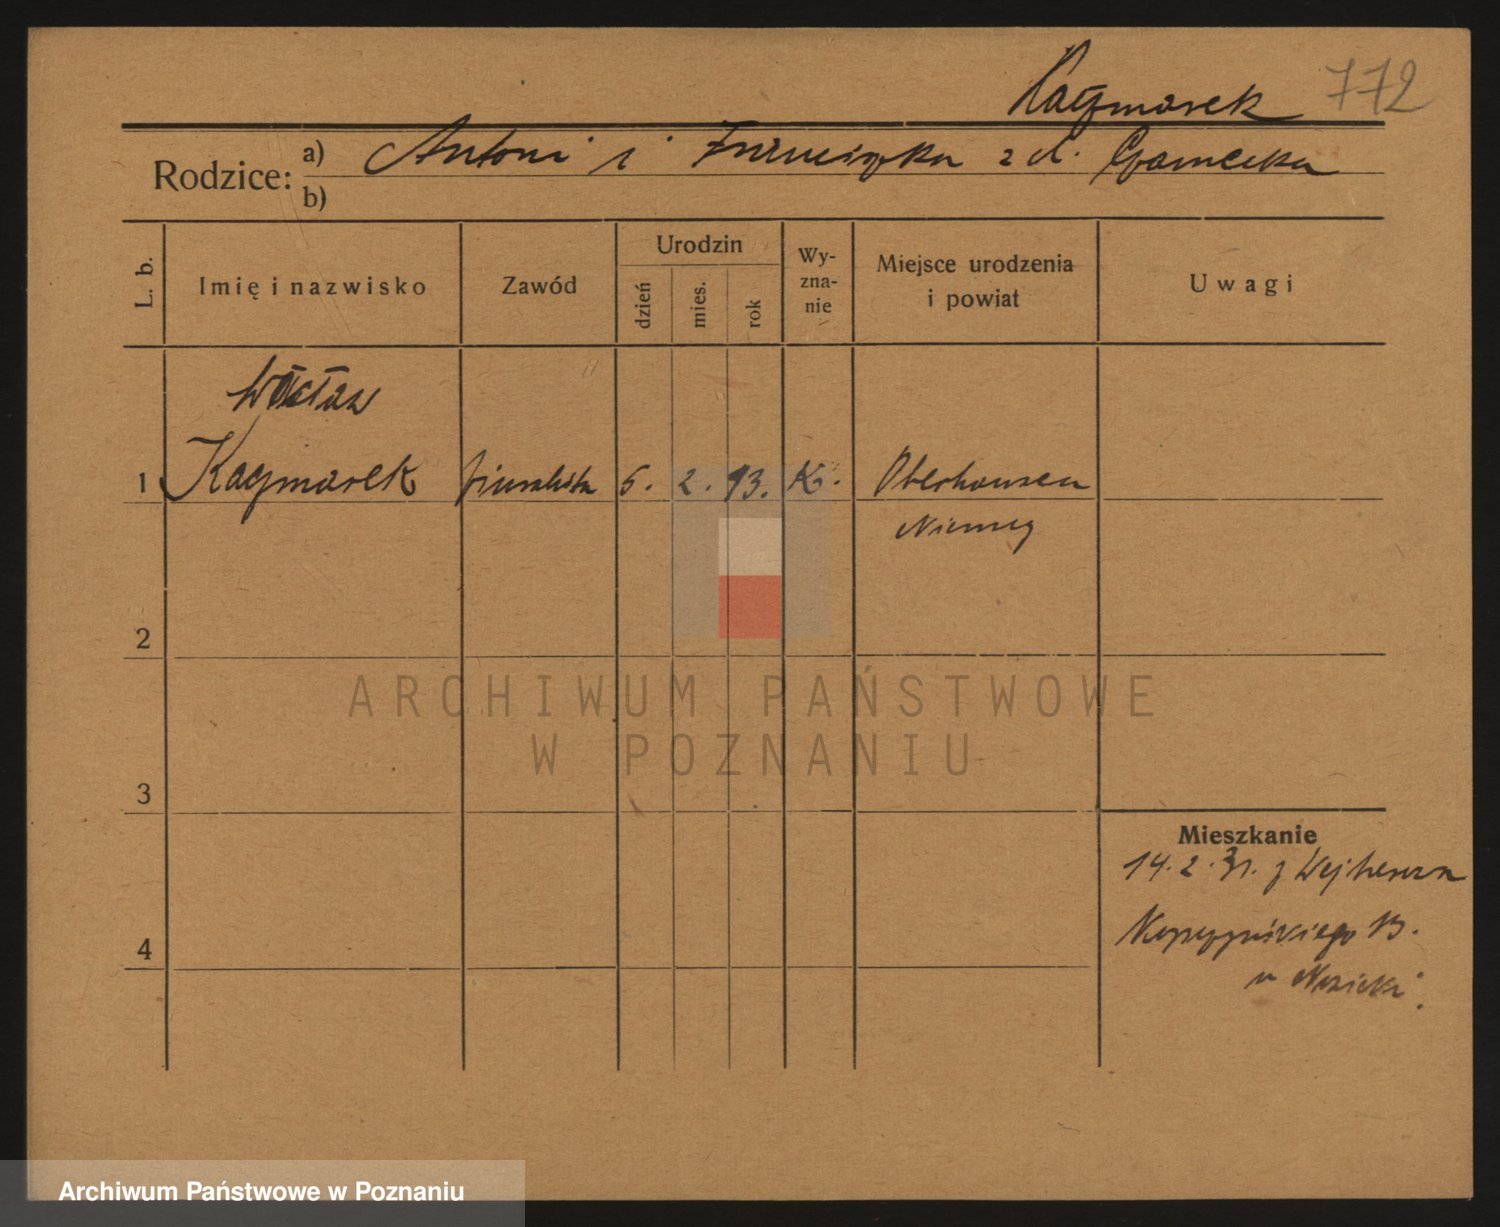 Kaczmarek 772
Rodzice: a) Antoni i Franciszka z d. Czarnecka
b)
L. b. Imię i nazwisko Zawód Urodzin dzień mies. rok Wy-zna-nie Miejsce urodzenia i powiat Uwagi
Wacław
1 Kaczmarek biuralista 5. 2. 93. K. Oberhausen
Niemcy
2
ARCHIWUM PAŃSTWOWE
W POZNANIU
3
Mieszkanie
14. 2. 31. z Wejherowa
13.
4
w
Archiwum Państwowe w Poznaniu